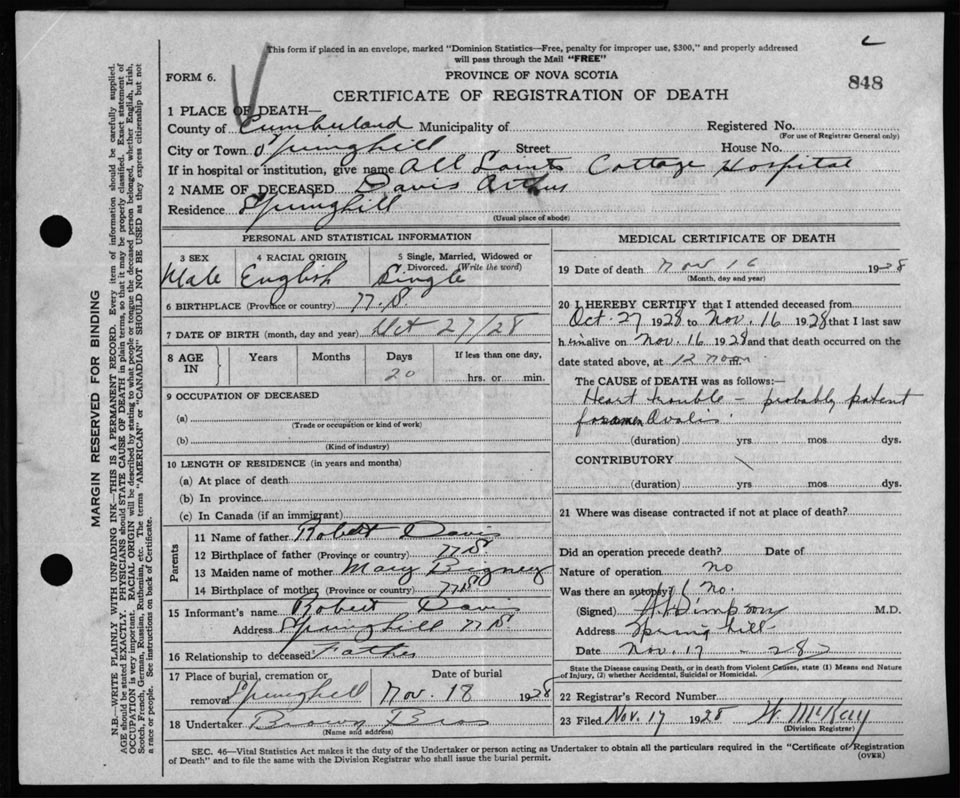 This form if placed in an envelope, marked "Dominion Statistics—Free, penalty for improper use, $300," and properly addressed
will pass through the Mail "FREE"
FORM 6.
PROVINCE OF NOVA SCOTIA
848
CERTIFICATE OF REGISTRATION OF DEATH
1 PLACE OF DEATH—
County of Cumberland Municipality of Registered No.
(For use of Registrar General only)
City or Town Springhill Street House No.
If in hospital or institution, give name All Saints Cottage Hospital
2 NAME OF DECEASED Davis Arthur
Residence Springhill
(Usual place of abode)
PERSONAL AND STATISTICAL INFORMATION
3 SEX 4 RACIAL ORIGIN 5 Single, Married, Widowed or
Divorced. (Write the word)
Male English Single
6 BIRTHPLACE (Province or country) N.S.
7 DATE OF BIRTH (month, day and year) Oct 27/28
8 AGE IN Years Months Days If less than one day,
20 hrs. or min.
9 OCCUPATION OF DECEASED
(a)
(Trade or occupation or kind of work)
(b)
(Kind of industry)
10 LENGTH OF RESIDENCE (in years and months)
(a) At place of death
(b) In province
(c) In Canada (if an immigrant)
Parents
11 Name of father Robert Davis
12 Birthplace of father (Province or country) N.S.
13 Maiden name of mother Mary Bigney
14 Birthplace of mother (Province or country) N.S.
15 Informant's name Robert Davis
Address Springhill N.S.
16 Relationship to deceased Father
17 Place of burial, cremation or Date of burial
removal Springhill Nov. 18 1928
18 Undertaker Brown Bros
(Name and address)
MEDICAL CERTIFICATE OF DEATH
19 Date of death Nov 16 1928
(Month, day and year)
20 I HEREBY CERTIFY that I attended deceased from
Oct. 27 1928 to Nov. 16 1928 that I last saw
him alive on Nov. 16 1928 and that death occurred on the
date stated above, at 12 noon
The CAUSE of DEATH was as follows:—
Heart trouble – probably patent
foramen Ovalis
(duration) yrs. mos. dys.
CONTRIBUTORY
(duration) yrs. mos. dys.
21 Where was disease contracted if not at place of death?
Did an operation precede death? Date of
Nature of operation no
Was there an autopsy? No.
(Signed) Simpson M.D.
Address Springhill
Date Nov. 17 - 28
State the Disease causing Death, or in death from Violent Causes, state (1) Means and Nature
of Injury, (2) whether Accidental, Suicidal or Homicidal.
22 Registrar's Record Number
23 Filed Nov. 17 1928 W McKay
(Division Registrar)
SEC. 46—Vital Statistics Act makes it the duty of the Undertaker or person acting as Undertaker to obtain all the particulars required in the "Certificate of Registration
of Death" and to file the same with the Division Registrar who shall issue the burial permit.
(OVER)
MARGIN RESERVED FOR BINDING
N.B.—WRITE PLAINLY WITH UNFADING INK—THIS IS A PERMANENT RECORD. Every item of information should be carefully supplied.
AGE should be stated EXACTLY. PHYSICIANS should STATE CAUSE OF DEATH in plain terms, so that it may be properly classified. Exact statement of
OCCUPATION is very important. RACIAL ORIGIN will be described by stating to what people and tongue the deceased person belonged, whether English, Irish,
Scotch, French, German, Russian, Ruthenian, etc. The terms "AMERICAN" or "CANADIAN" SHOULD NOT BE USED as they express citizenship but not
a race or people. See instructions on back of Certificate.